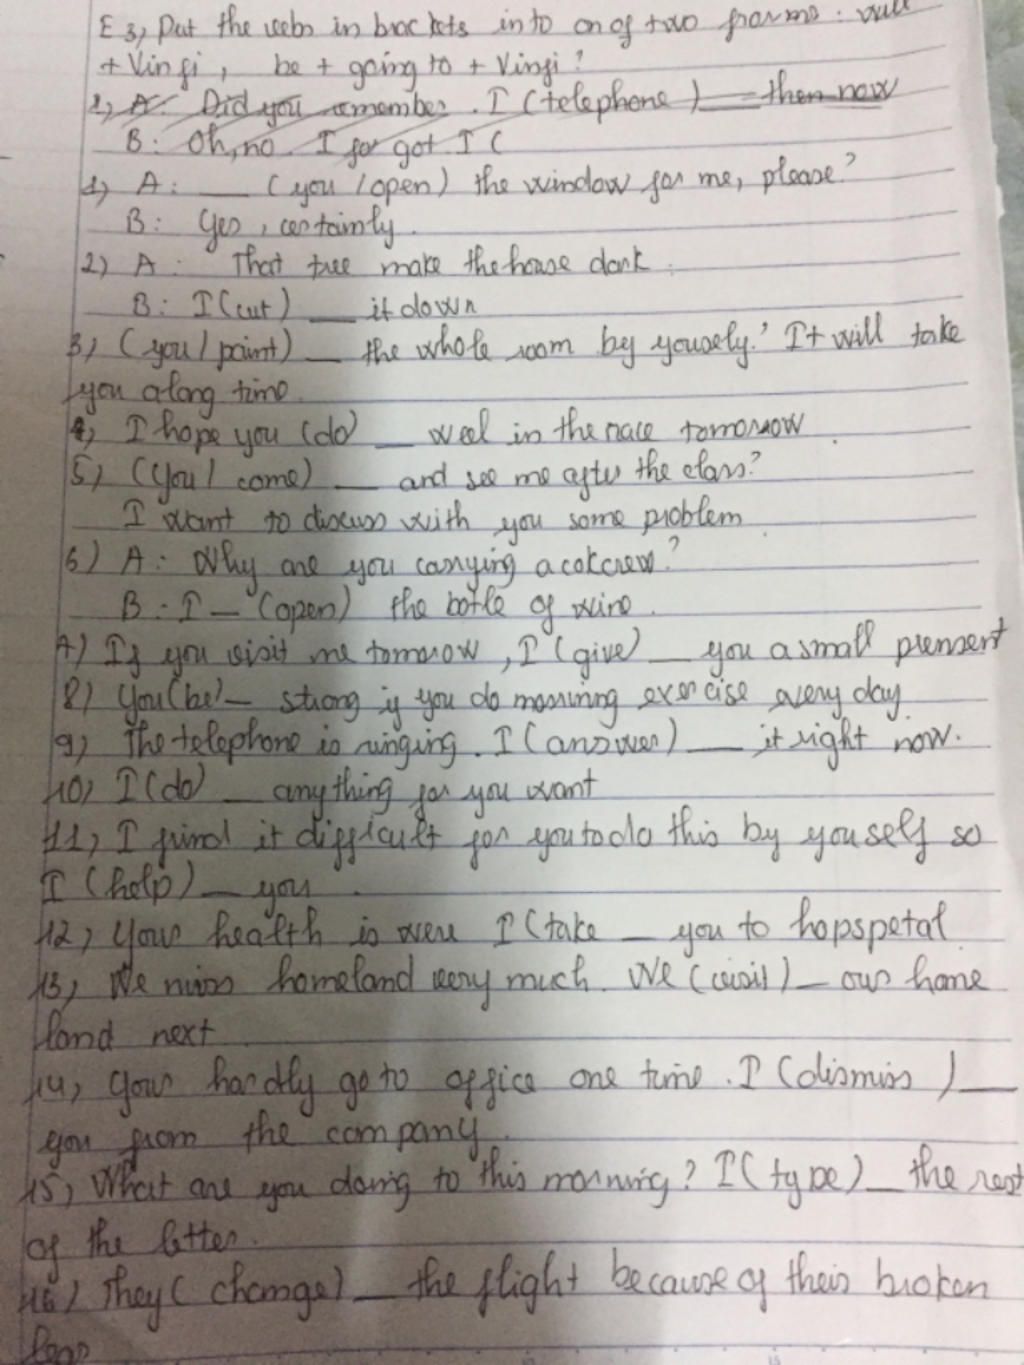 E 3, Put the vebs in brackets into on of two forms : will
+ Vinfi , be + going to + Vinfi ?
1, A: Did you remember . I (telephone ) then now
B: Oh, no . I for got I (
1, A: __ ( you / open) the window for me, please ?
B: Yes , certainly .
2) A : That tree make the house dark .
B: I (cut) __ it down
3, (you / paint) _ the whole room by yousely.' It will take
you along time
4, I hope you (do) _ weel in the race tomorrow .
5, (you / come) __ and see me after the class ?
I want to discuss with you some problem
6) A : Why are you carrying a cokcrew ?
B : I _ (open) the botle of wine .
7) If you visit me tomorow , I (give) _ you a small prensent
8) You (be) _ strong if you do morning exercise every day
9) The telephone is ringing . I (answer) __ it right now .
10, I (do) _ anything for you want
11, I find it difficult for you to do this by youself so
I (help) _ you .
12, Your health is were I (take _ you to hopspetal
13, We miss homeland very much. We (visit) _ our home
land next
14, Your hardly go to office one time . I (dismiss ) __
you from the company .
15, What are you doing to this morning ? I ( type) _ the rest
of the letter .
16 ) They ( change) _ the flight because of their broken
legs